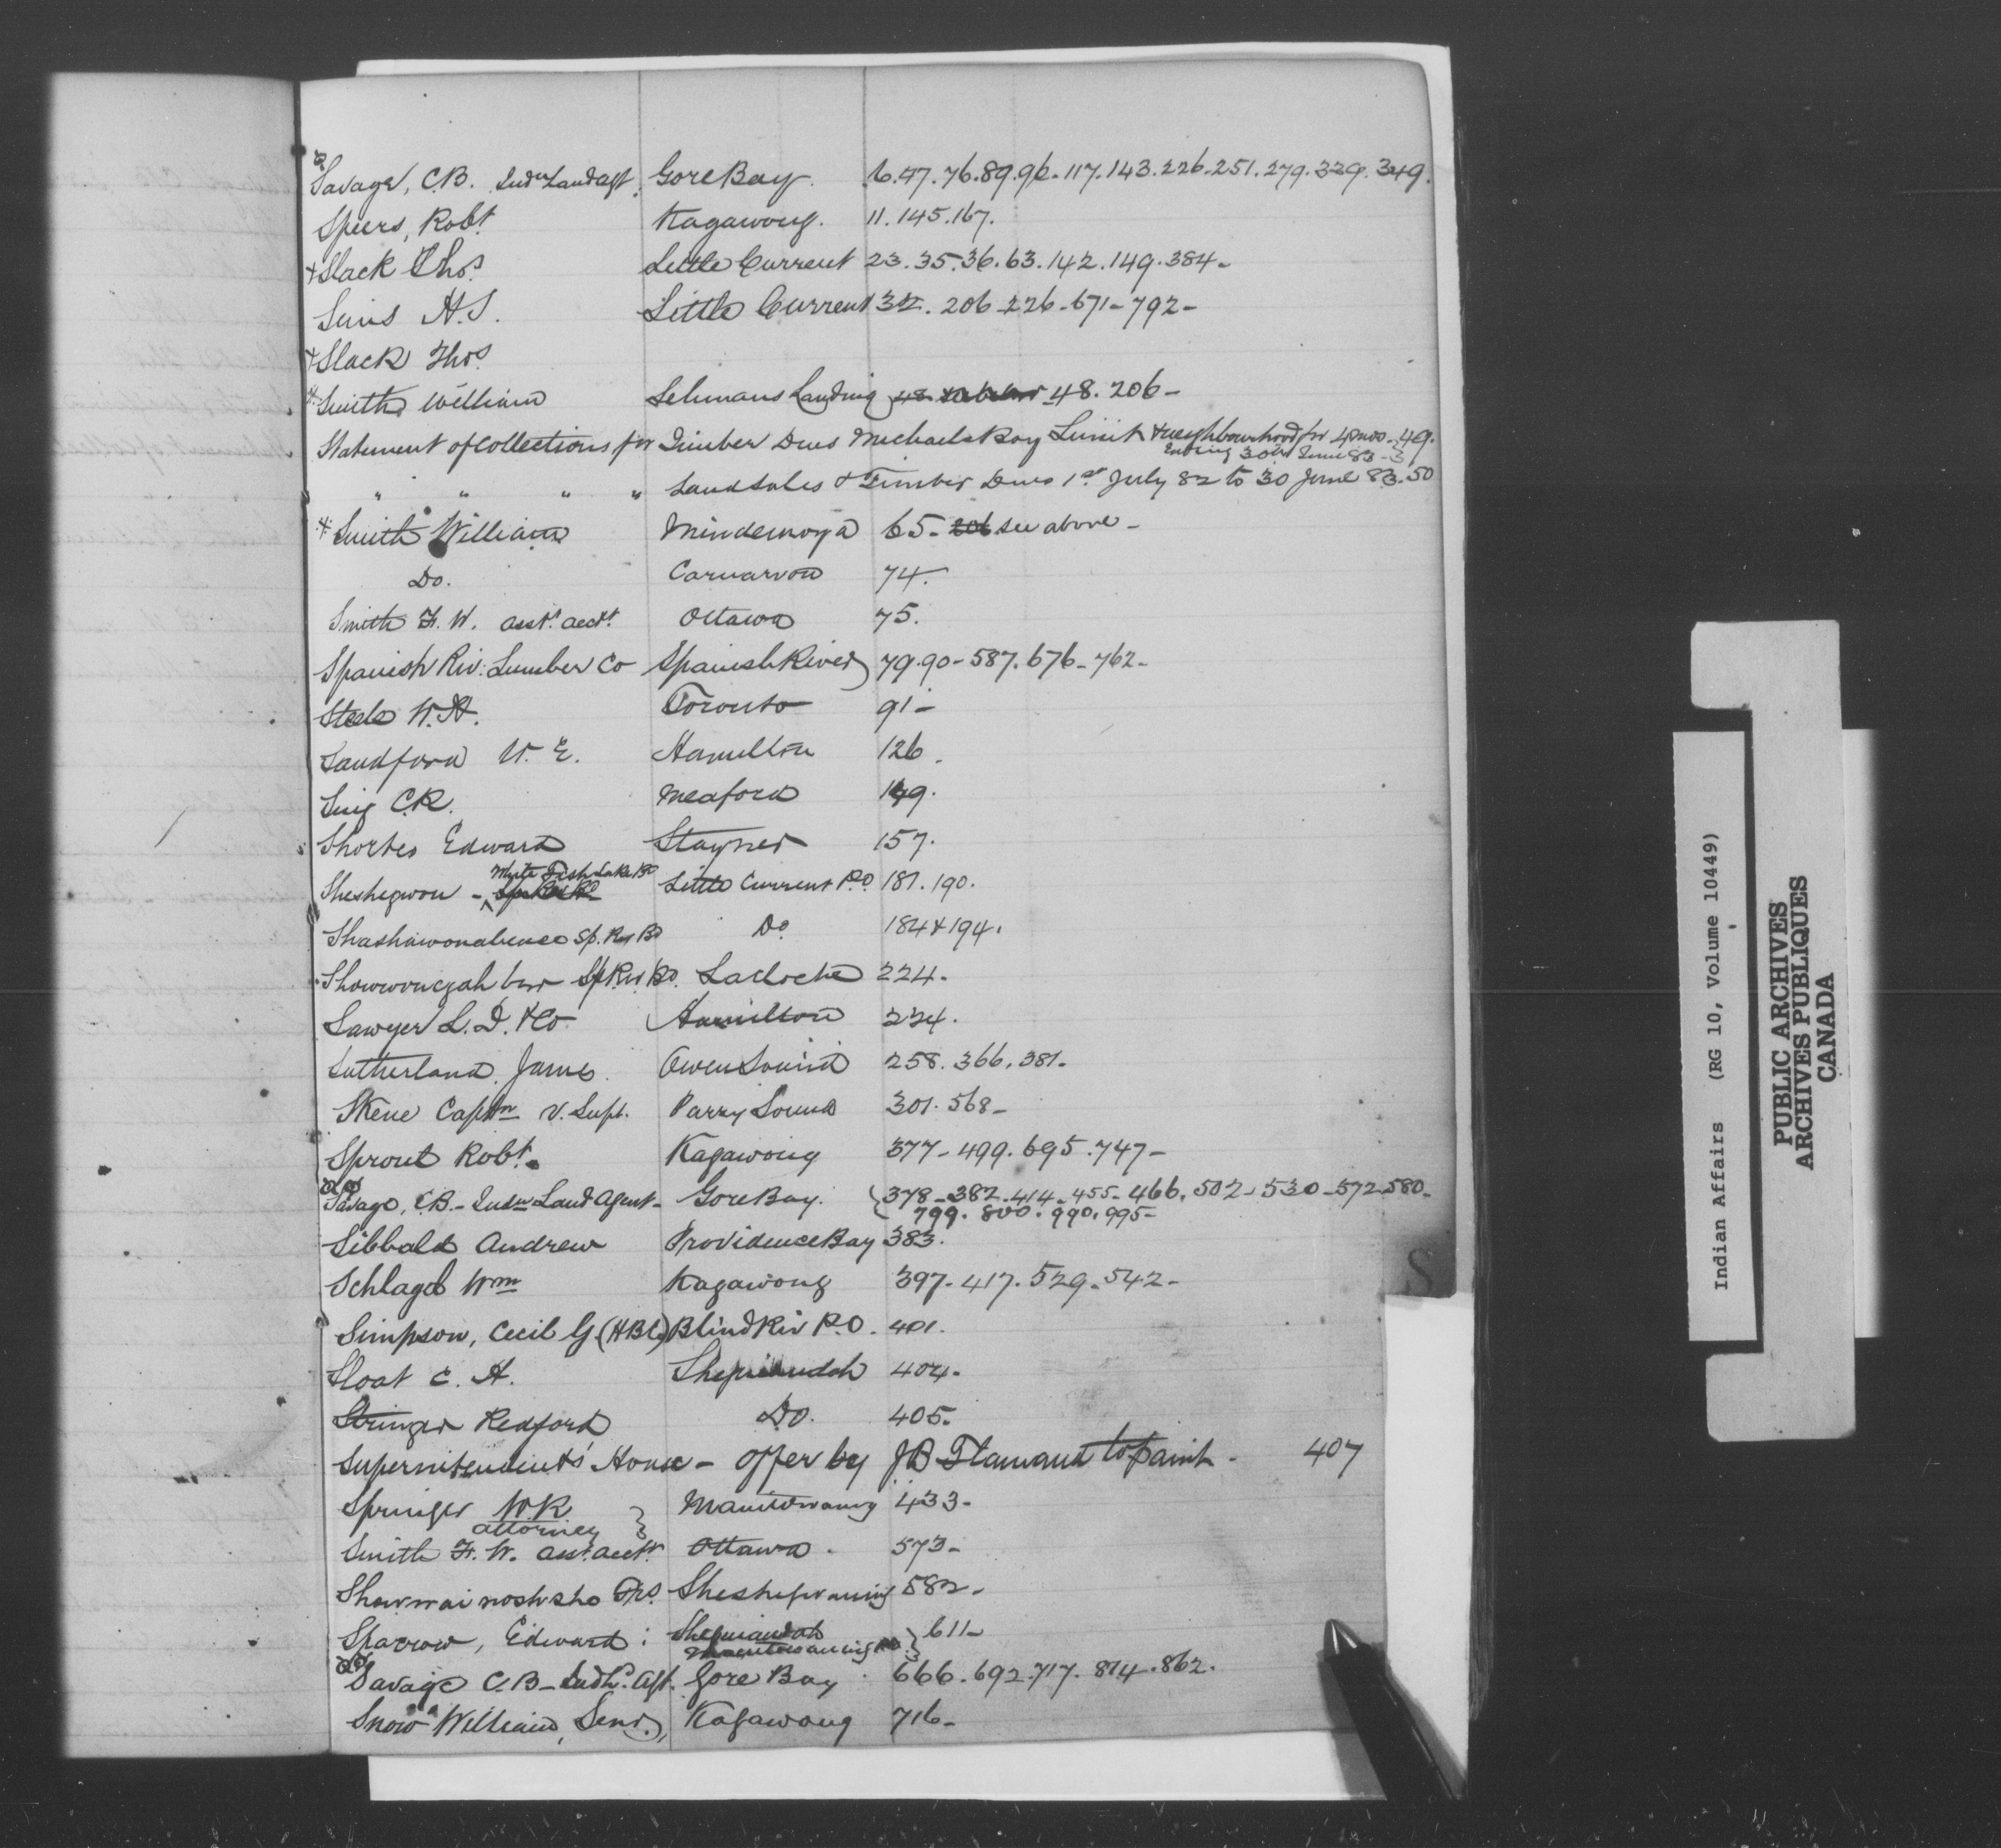 Savage, C.B. Indn Land Agt. Gore Bay. 6.47.76.89.96.117.143.226.251.279.339.349.
Speers, Robt. Kagawong. 11.145.167.
+Slack Thos. Little Current 23.35.36.63.142.149.384-
Sims H.S. Little Current 32. 206-226-671-792-
+Slack Thos.
Smith William Sehmans Landing 48. 206-
Statement of Collections for Timber Dues Michaels Bay Limit & neighbourhood for 4 mos-49.
Ending 30th June 83-
" " " " Land Sales & Timber Dues 1st July 82 to 30 June 83.50
Smith William Mindemoya 65- 206 see above-
Do. Carnarvon 74.
Smith F.W. asst. acct. Ottawa 75.
Spanish Riv: Lumber Co Spanish River 79.90-587.676-762-
Steele W.H. Toronto 91-
Sandford W.E. Hamilton 126.
Sing C.R. Meaford 149.
Shortes Edward Stayner 157.
White Fish Lake Bd
Sheshegwon - Little Current P.O. 187.190.
Sp. Riv Bd Do 184 & 194.
Sp Riv Bd. Lacloche 224.
Sawyer L.D. & Co. Hamilton 234.
Sutherland, James. Owen Sound 258.366.381-
Skene Captn V. Supt. Parry Sound 301.568-
Sproul Robt. Kagawong 377-499.695.747-
Savage, C.B.- Indn Land Agent- Gore Bay. 378-382-414-455-466.502-530-572.580-
799. 800. 990.995-
Sibbald Andrew Providence Bay 383.
Schlagel Wm Kagawong 397-417.529-542-
Simpson, Cecil G (HBC) Blind Riv P.O. 401.
Sloat C.H. Sheguiandah 404-
Stringer Redford Do. 405-
Superintendents' House- Offer by JB to paint- 407
Springer W.R. Manitowaning 433-
attorney
Smith F.W. asst. acct. Ottawa. 573-
Sheshegwaning 582-
Sparrow, Edward: Sheguiandah 611-
Manitowaning P.O.
Savage C.B- Indn. Agt. Gore Bay 666.692.717.814.862.
Snow William, Senr., Kagawong 716-
S
Indian Affairs (RG 10, Volume 10449)
PUBLIC ARCHIVES
ARCHIVES PUBLIQUES
CANADA